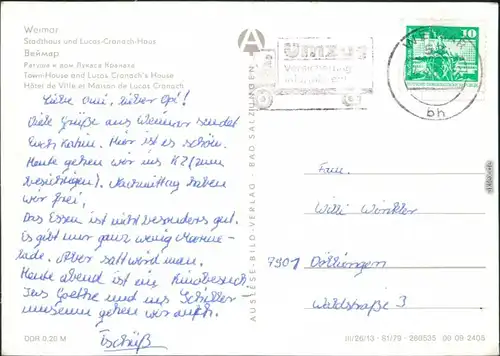 Weimar
Stadthaus und Lucas-Cranach-Haus
Веймар
Ратуша и дом Лукаса Кранаха
Town-House and Lucas Cranach's House
Hôtel de Ville et Maison de Lucas Cranach
Liebe Omi, lieber Opi!
Viele Grüße aus Weimar sendet
Euch Katrin. Hier ist es schön.
Heute gehen wir ins KZ (zum
besichtigen). Nachmittag haben
wir frei.
Das Essen ist nicht besonders gut.
Es gibt nur ganz wenig Marme-
lade. Aber satt wird man.
Heute abend ist ein Kinobesuch
Ins Goethe und ins Schiller
museum gehen wir auch.
Tschüß
DDR 0,20 M
AUSLESE-BILD-VERLAG · BAD SALZUNGEN
A
Umzug
10
bh
Fam.
Willi Winkler
7901 Döllingen
Waldstraße 3
III/26/13 · 81/79 · 280535 00 09 2405